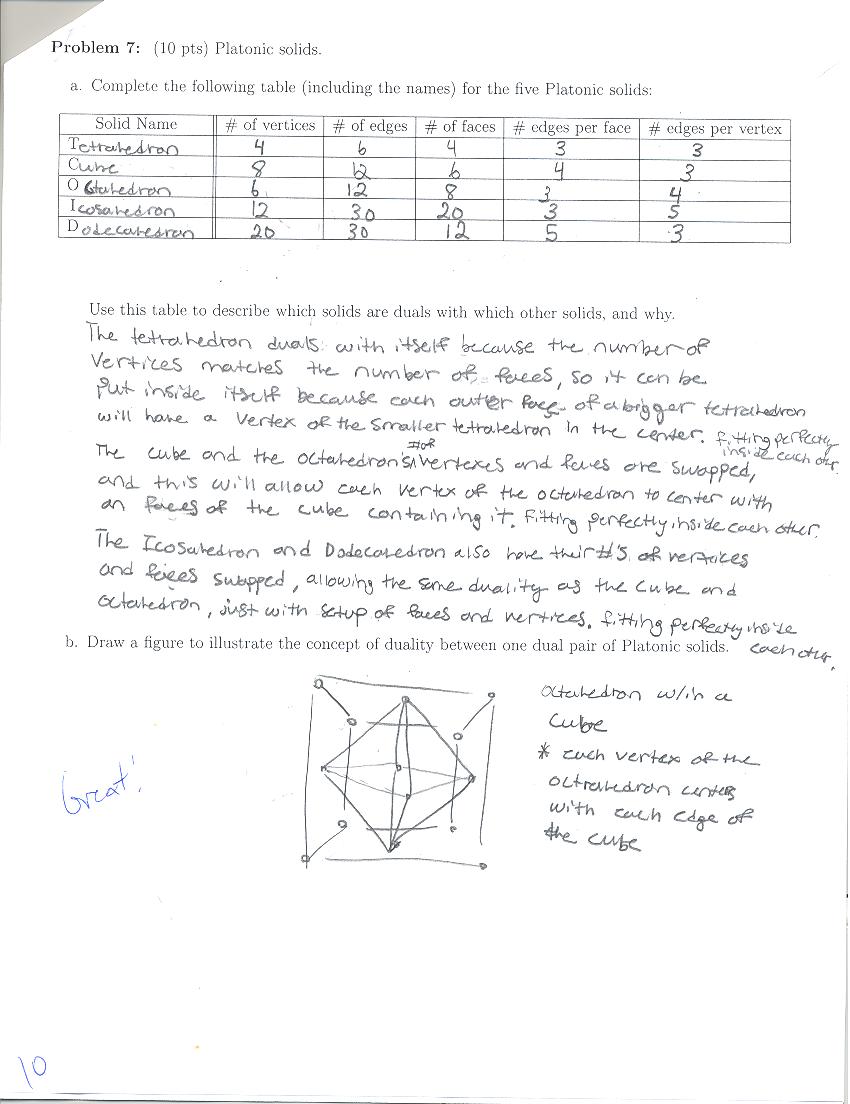 Problem 7: (10 pts) Platonic solids.
a. Complete the following table (including the names) for the five Platonic solids:
Solid Name # of vertices # of edges # of faces # edges per face # edges per vertex
Tetrahedron 4 6 4 3 3
Cube 8 12 6 4 3
Octahedron 6 12 8 3 4
Icosahedron 12 30 20 3 5
Dodecahedron 20 30 12 5 3
Use this table to describe which solids are duals with which other solids, and why.
The tetrahedron duals with itself because the number of
vertices matches the number of faces, so it can be
put inside itself because each outer face of a bigger tetrahedron
will have a vertex of the smaller tetrahedron in the center. fitting perfectly
inside each other
The cube and the octahedron's # of vertexes and faces are swapped,
and this will allow each vertex of the octahedron to center with
an faces of the cube containing it. Fitting perfectly inside each other.
The Icosahedron and Dodecahedron also have their #'s of vertices
and faces swapped, allowing the same duality as the cube and
octahedron, just with setup of faces and vertices. fitting perfectly inside
each other.
b. Draw a figure to illustrate the concept of duality between one dual pair of Platonic solids.
Octahedron w/in a
Cube
* each vertex of the
octrahedron centers
with each edge of
the cube
Great!
10